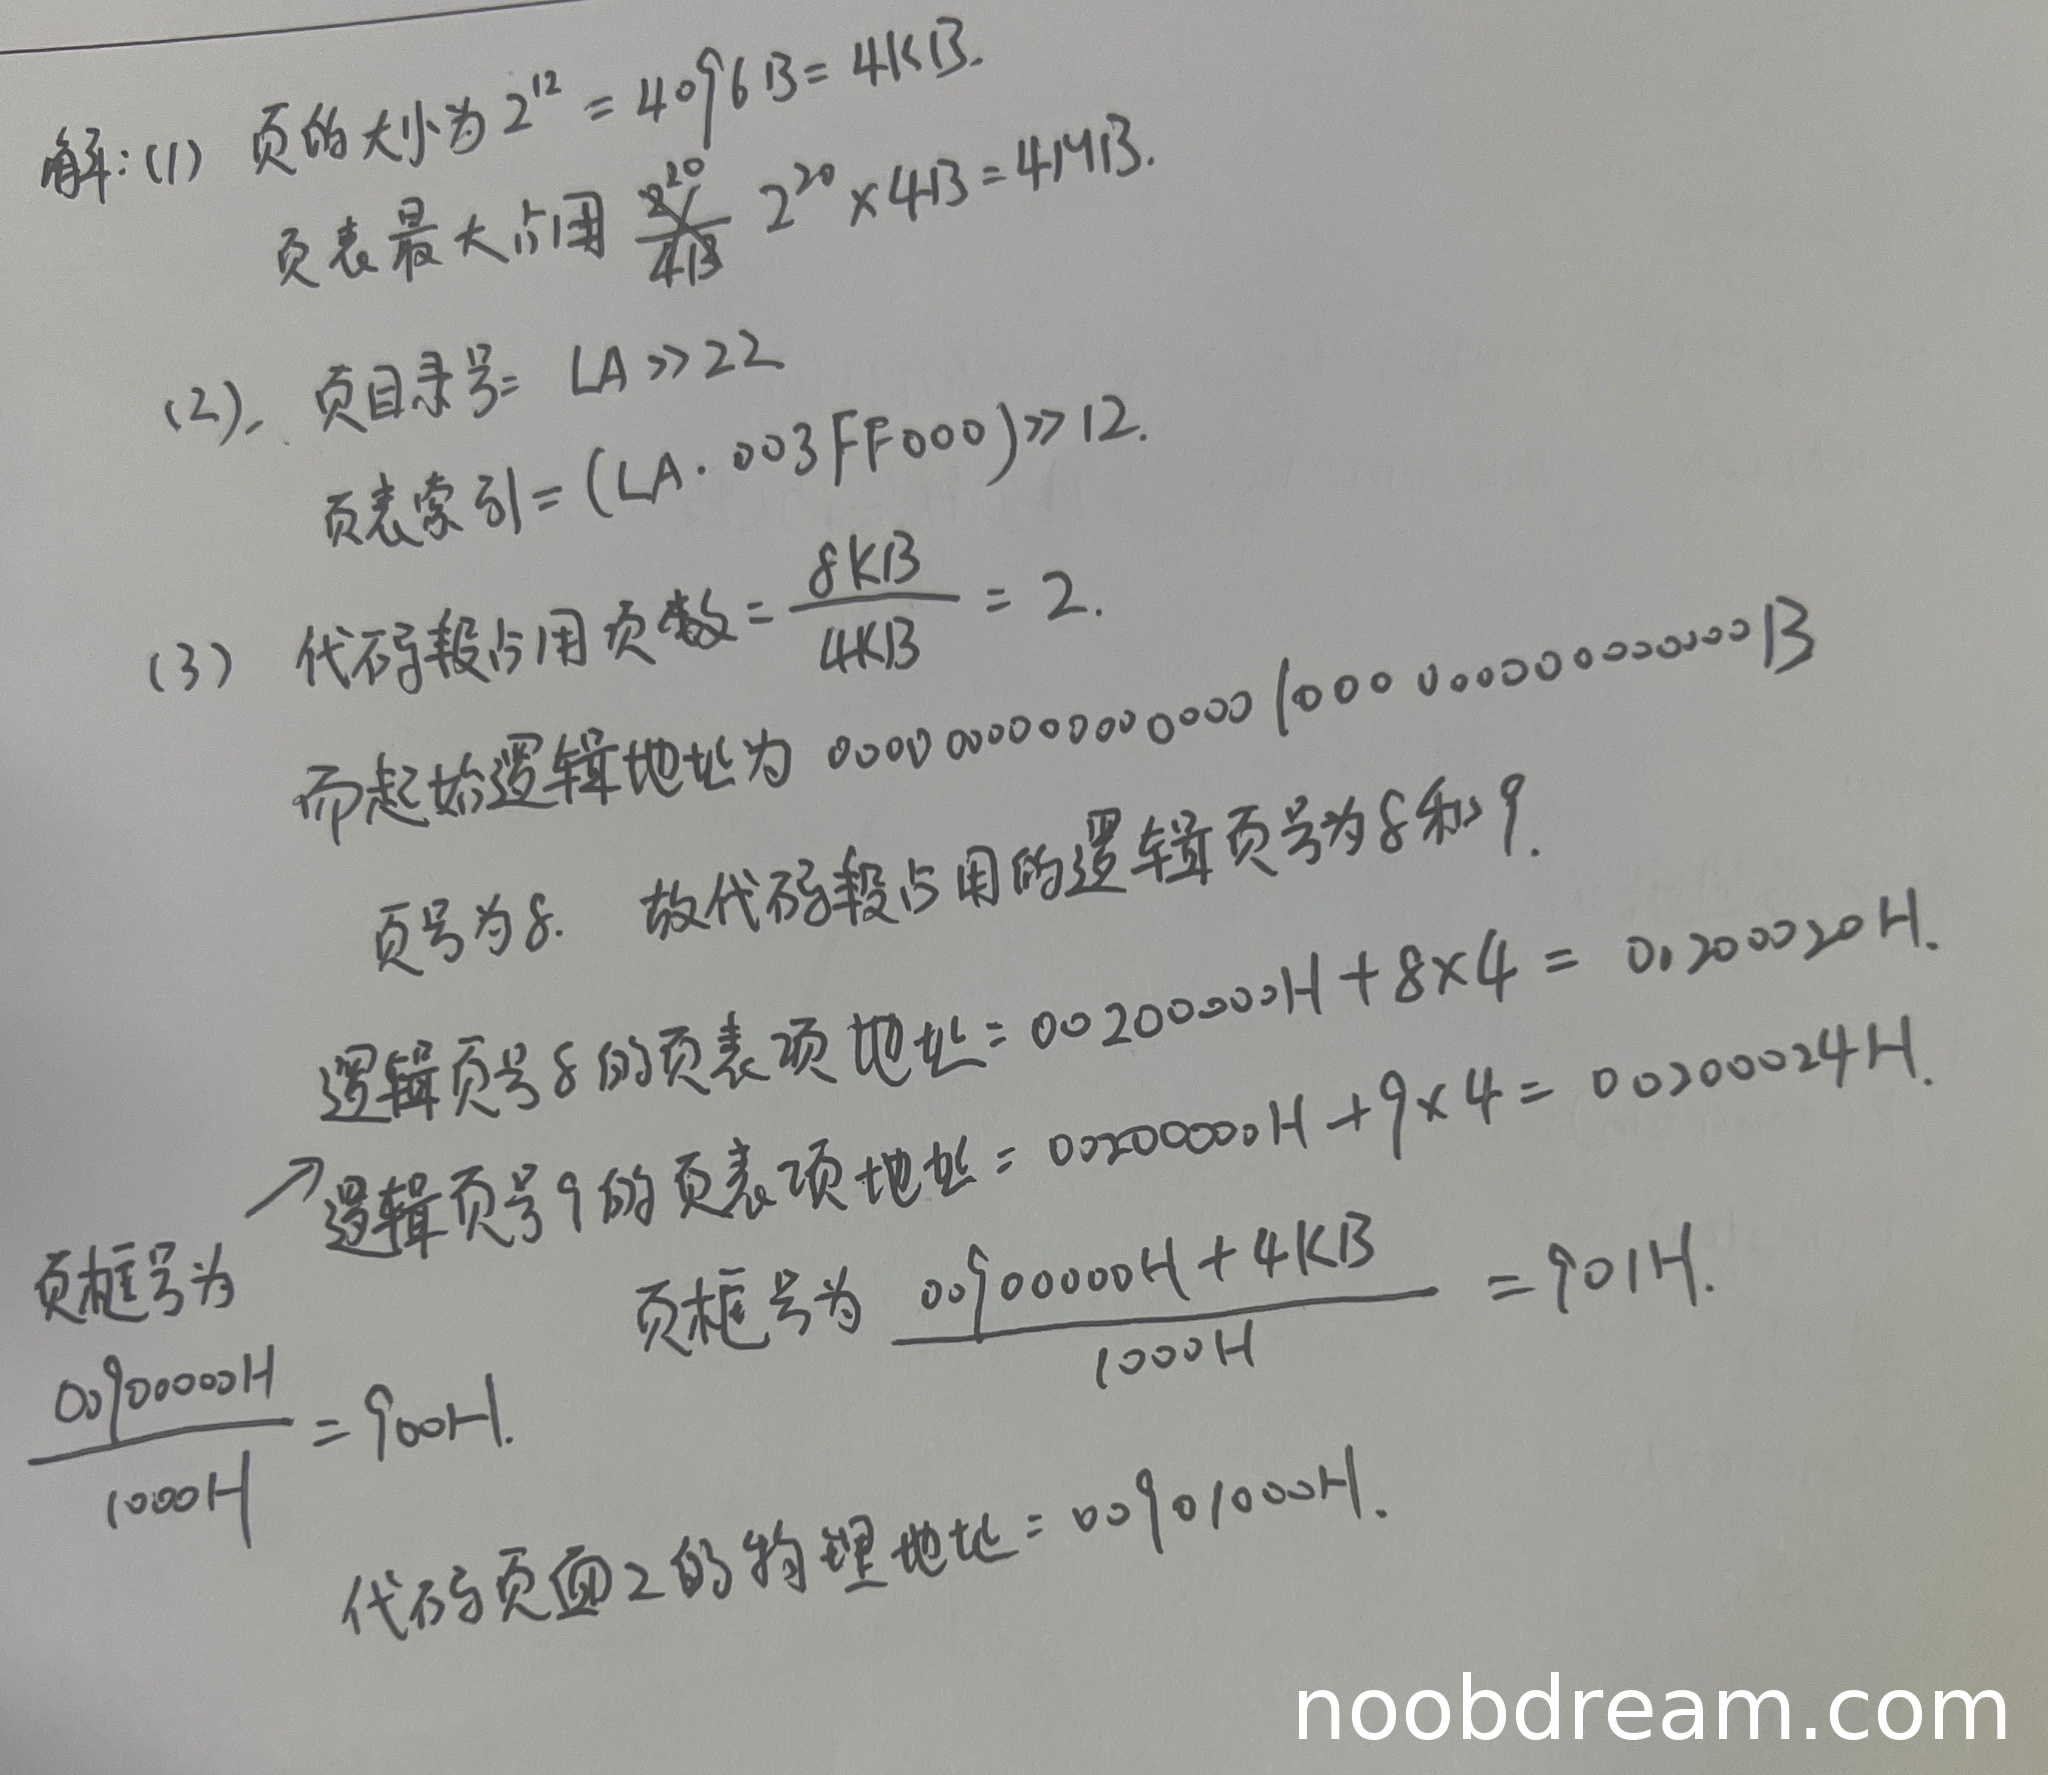 解:(1) 页的大小为 2¹² = 4096B = 4KB.
页表最大占用 2²⁰/4B 2²⁰ × 4B = 4MB.
(2). 页目录号 = LA >> 22
页表索引 = (LA · 003FF000) >> 12.
(3) 代码段占用页数 = 8KB/4KB = 2.
而起始逻辑地址为 0000 0000 0000 0000 1000 0000 0000 0000B
页号为8. 故代码段占用的逻辑页号为8和9.
逻辑页号8的页表项地址 = 00200000H + 8×4 = 00200020H.
逻辑页号9的页表项地址 = 00200000H + 9×4 = 00200024H.
页框号为
00900000H/1000H = 900H.
页框号为 (00900000H + 4KB)/1000H = 901H.
代码页面2的物理地址 = 00901000H.
noobdream.com